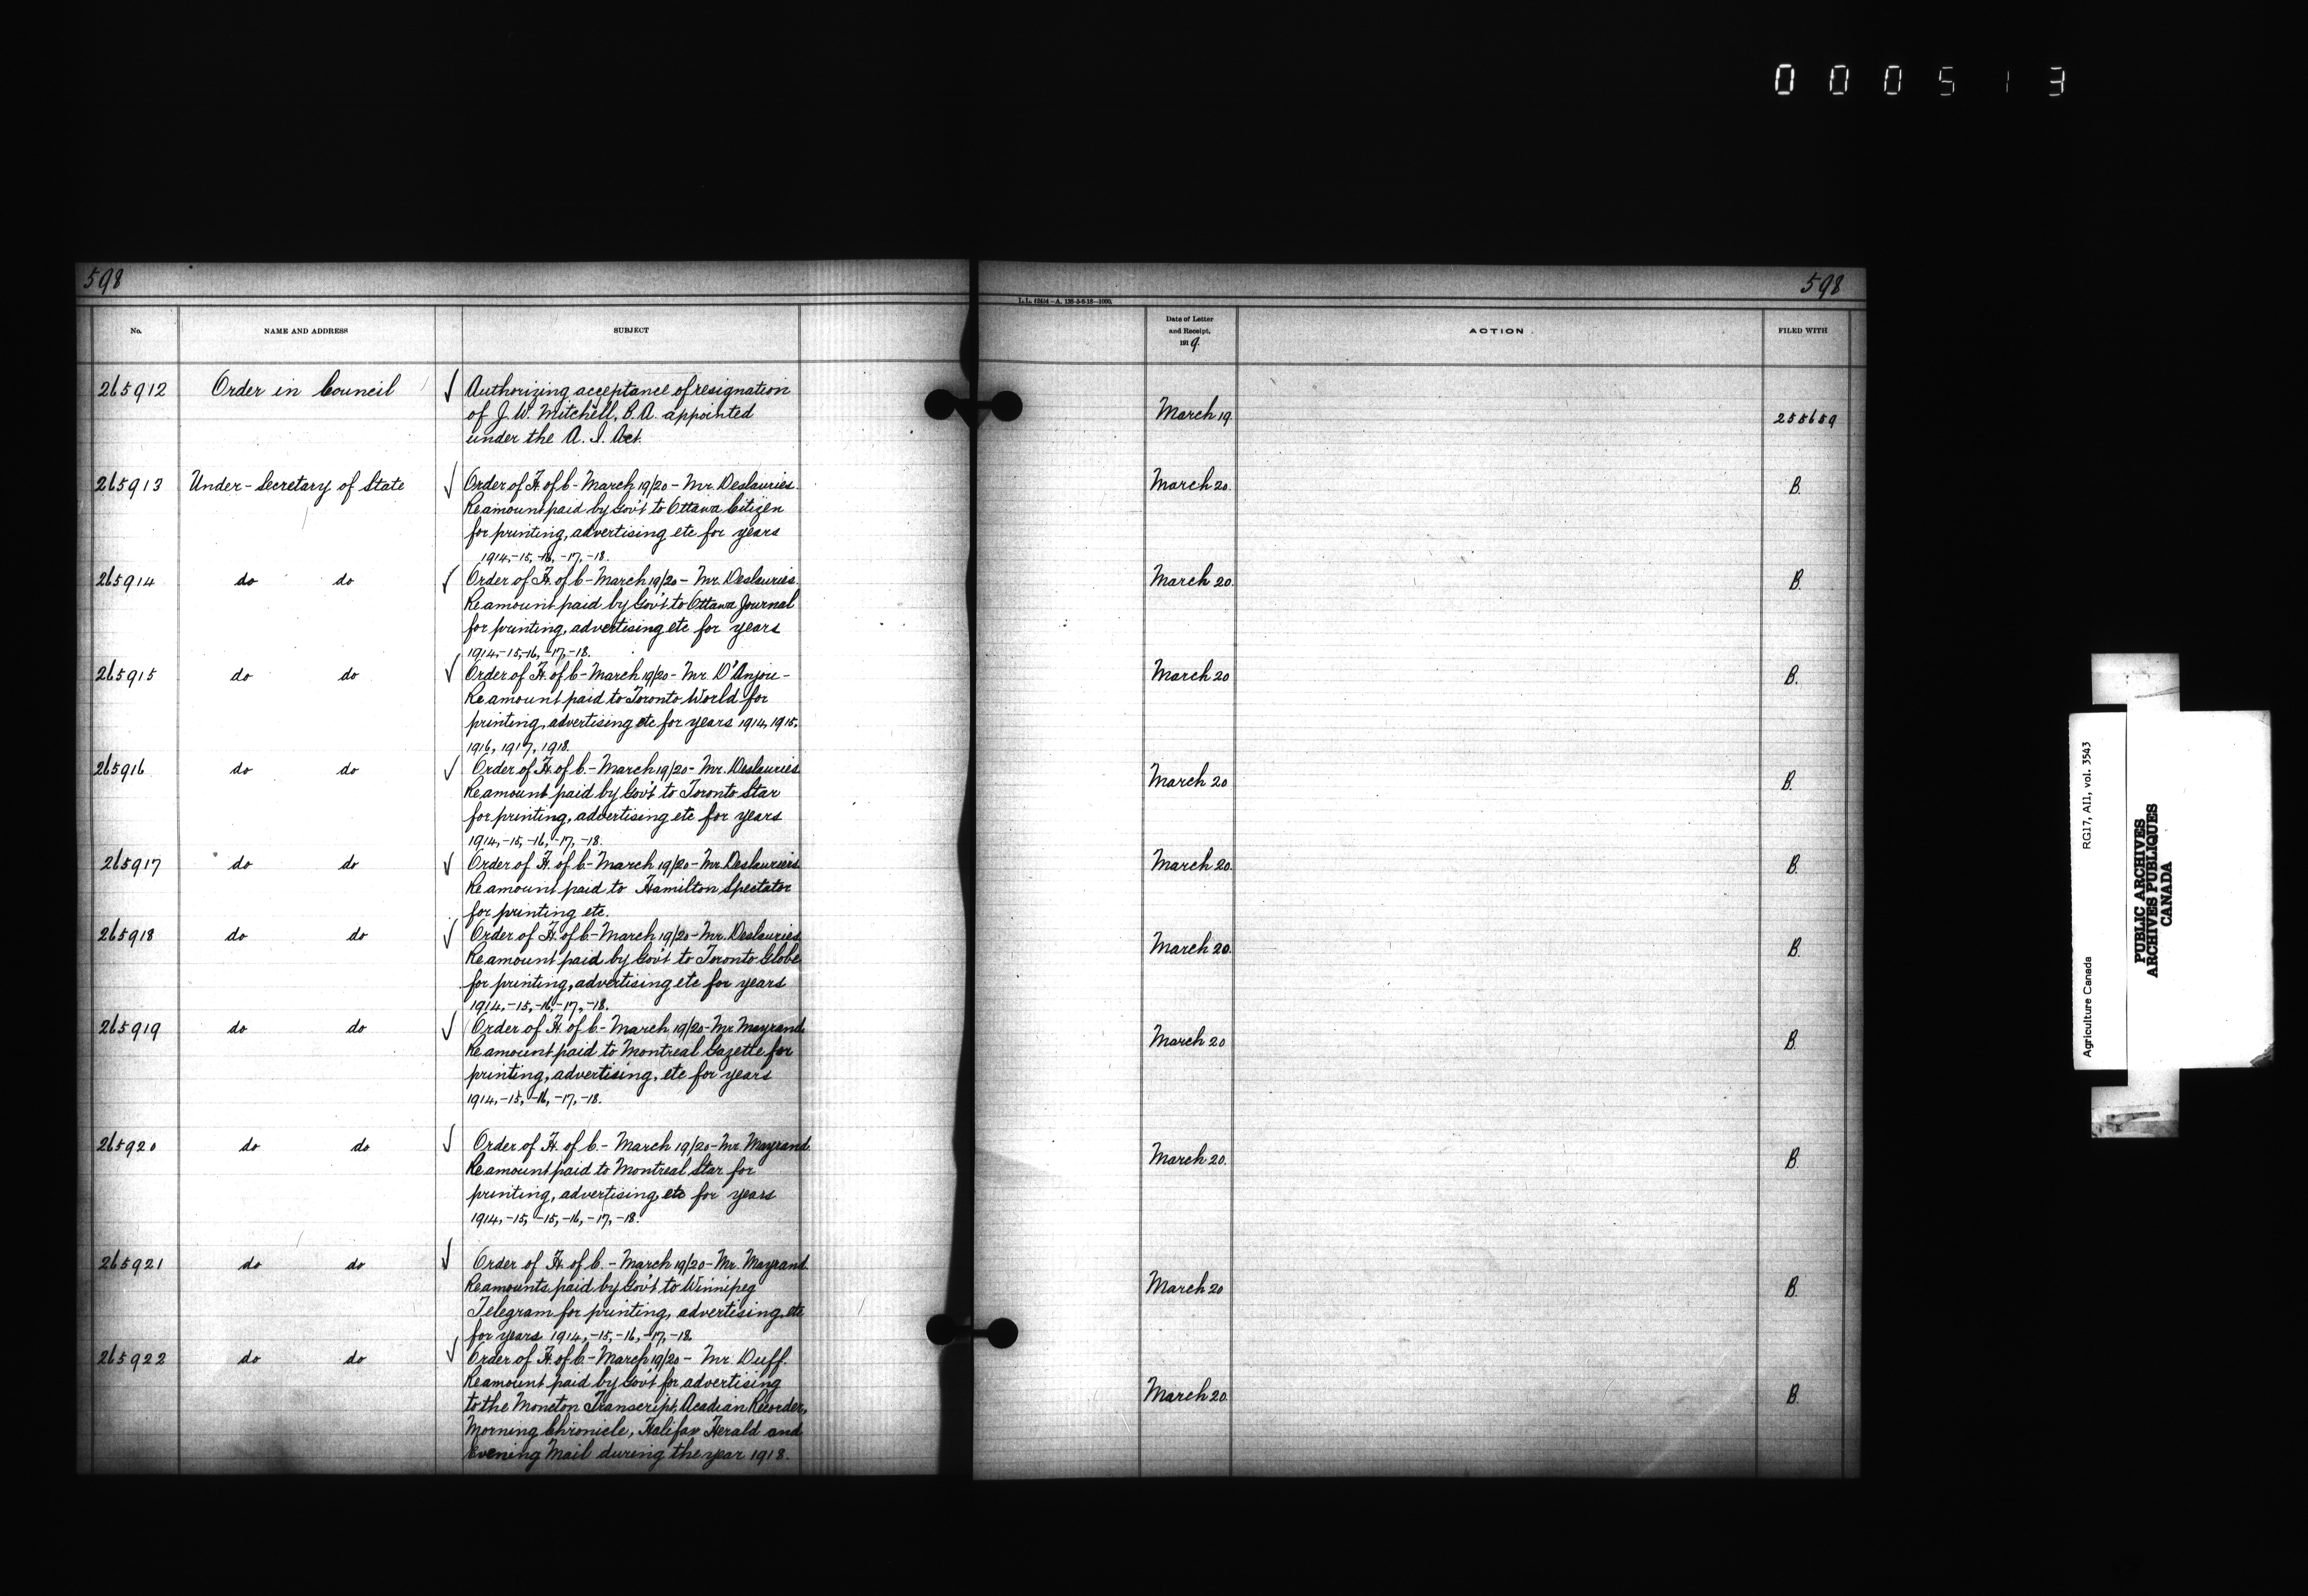 000513
598
598
L.L. 62634—A. 133-5-6-18—1000.
No.
NAME AND ADDRESS
SUBJECT
Date of Letter
and Receipt,
1919.
ACTION
FILED WITH
265912 Order in Council √ Authorizing acceptance of resignation
of J. W. Mitchell, B.A. appointed March 19. 255659
under the A. I. Act.
265913 Under-Secretary of State √ Order of H. of C - March 19/20 - Mr. Deslauries. March 20. B.
Re amount paid by Gov't to Ottawa Citizen
for printing, advertising etc for years
1914,-15,-16,-17,-18.
265914 do do √ Order of H. of C - March 19/20 - Mr. Deslauries. March 20. B.
Re amount paid by Gov't to Ottawa Journal
for printing, advertising etc for years
1914,-15,-16,-17,-18.
265915 do do √ Order of H. of C - March 19/20 - Mr. D'Anjou - March 20 B.
Re amount paid to Toronto World for
printing, advertising etc for years 1914, 1915,
1916, 1917, 1918.
265916 do do √ Order of H. of C. - March 19/20 - Mr. Deslauries. March 20 B.
Re amount paid by Gov't to Toronto Star
for printing, advertising etc for years
1914,-15,-16,-17,-18.
265917 do do √ Order of H. of C - March 19/20 - Mr. Deslauriers March 20. B.
Re amount paid to Hamilton Spectator
for printing etc.
265918 do do √ Order of H. of C - March 19/20 - Mr. Deslauries March 20. B.
Re amount paid by Gov't to Toronto Globe
for printing, advertising etc for years
1914,-15,-16,-17,-18.
265919 do do √ Order of H. of C. - March 19/20 - Mr Mayrand. March 20 B.
Re amount paid to Montreal Gazette for
printing, advertising, etc for years
1914,-15,-16,-17,-18.
265920 do do √ Order of H. of C. - March 19/20 - Mr. Mayrand. March 20. B.
Re amount paid to Montreal Star for
printing, advertising, etc for years
1914,-15,-15,-16,-17,-18.
265921 do do √ Order of H. of C. - March 19/20 - Mr. Mayrand. March 20 B.
Re amounts paid by Gov't to Winnipeg
Telegram for printing, advertising, etc
for years 1914,-15,-16,-17,-18.
265922 do do √ Order of H. of C - March 19/20 - Mr. Duff. March 20. B.
Re amount paid by Gov't for advertising
to the Moncton Transcript, Acadian Recorder,
Morning Chronicle, Halifax Herald and
Evening Mail during the year 1918.
Agriculture Canada RG17, AII, vol. 3543
PUBLIC ARCHIVES
ARCHIVES PUBLIQUES
CANADA